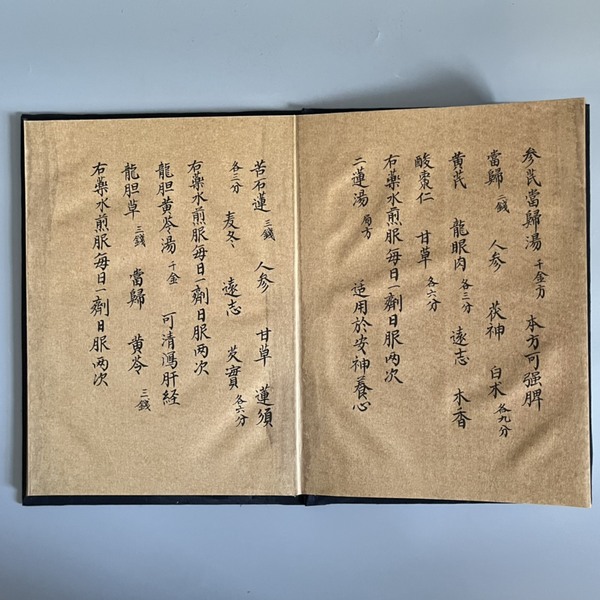 参芪當歸湯 千金方 本方可强脾
當歸 一錢 人参 茯神 白术 各九分
黄芪 龍眼肉 各三分 遠志 木香
酸棗仁 甘草 各六分
右藥水煎服每日一劑日服两次
二蓮湯 局方 适用於安神養心
苦石蓮 三錢 人参 甘草 蓮須
各三分 麦冬 遠志 芡實 各六分
右藥水煎服每日一劑日服两次
龍胆黄芩湯 千金 可清瀉肝経
龍胆草 三錢 當歸 黄芩 三錢
右藥水煎服每日一劑日服两次